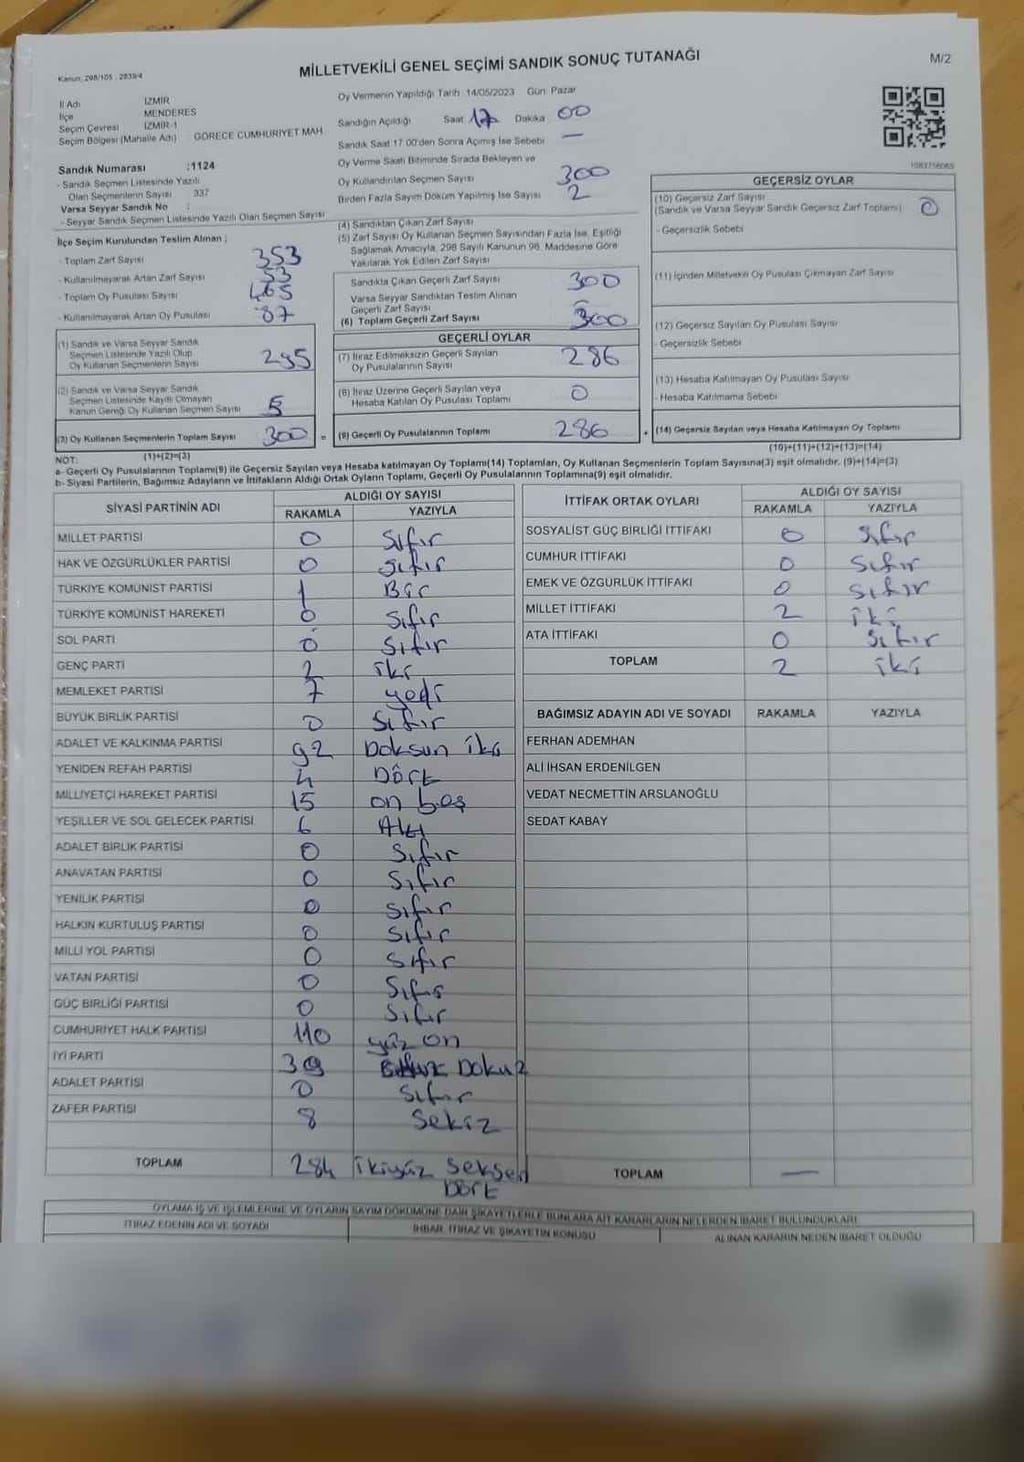 Kanun: 298/105 , 2839/4
MİLLETVEKİLİ GENEL SEÇİMİ SANDIK SONUÇ TUTANAĞI
M/2
İl Adı İZMİR
İlçe MENDERES
Seçim Çevresi İZMİR-1
Seçim Bölgesi (Mahalle Adı) GÖRECE CUMHURİYET MAH.
Sandık Numarası :1124
- Sandık Seçmen Listesinde Yazılı
Olan Seçmenlerin Sayısı 337
Varsa Seyyar Sandık No :
- Seyyar Sandık Seçmen Listesinde Yazılı Olan Seçmen Sayısı
İlçe Seçim Kurulundan Teslim Alınan ;
- Toplam Zarf Sayısı 353
- Kullanılmayarak Artan Zarf Sayısı 53
- Toplam Oy Pusulası Sayısı 465
- Kullanılmayarak Artan Oy Pusulası 87
(1) Sandık ve Varsa Seyyar Sandık
Seçmen Listesinde Yazılı Olup
Oy Kullanan Seçmenlerin Sayısı 295
(2) Sandık ve Varsa Seyyar Sandık
Seçmen Listesinde Kayıtlı Olmayan
Kanun Gereği Oy Kullanan Seçmen Sayısı 5
(3) Oy Kullanan Seçmenlerin Toplam Sayısı 300 =
(1)+(2)=(3)
Oy Vermenin Yapıldığı Tarih 14/05/2023 Gün: Pazar
Sandığın Açıldığı Saat 17 Dakika 00
Sandık Saat 17:00'den Sonra Açılmış İse Sebebi —
Oy Verme Saati Bitiminde Sırada Bekleyen ve
Oy Kullandırılan Seçmen Sayısı 300
Birden Fazla Sayım Döküm Yapılmış İse Sayısı 2
(4) Sandıktan Çıkan Zarf Sayısı
(5) Zarf Sayısı Oy Kullanan Seçmen Sayısından Fazla İse, Eşitliği
Sağlamak Amacıyla, 298 Sayılı Kanunun 98. Maddesine Göre
Yakılarak Yok Edilen Zarf Sayısı
Sandıkta Çıkan Geçerli Zarf Sayısı 300
Varsa Seyyar Sandıktan Teslim Alınan
Geçerli Zarf Sayısı –
(6) Toplam Geçerli Zarf Sayısı 300
GEÇERLİ OYLAR
(7) İtiraz Edilmeksizin Geçerli Sayılan
Oy Pusulalarının Sayısı 286
(8) İtiraz Üzerine Geçerli Sayılan veya
Hesaba Katılan Oy Pusulası Toplamı 0
(9) Geçerli Oy Pusulalarının Toplamı 286 +
1083756065
GEÇERSİZ OYLAR
(10) Geçersiz Zarf Sayısı
(Sandık ve Varsa Seyyar Sandık Geçersiz Zarf Toplamı) 0
- Geçersizlik Sebebi
(11) İçinden Milletvekili Oy Pusulası Çıkmayan Zarf Sayısı
(12) Geçersiz Sayılan Oy Pusulası Sayısı
- Geçersizlik Sebebi
(13) Hesaba Katılmayan Oy Pusulası Sayısı
- Hesaba Katılmama Sebebi
(14) Geçersiz Sayılan veya Hesaba Katılmayan Oy Toplamı
(10)+(11)+(12)+(13)=(14)
NOT:
a- Geçerli Oy Pusulalarının Toplamı(9) ile Geçersiz Sayılan veya Hesaba katılmayan Oy Toplamı(14) Toplamları, Oy Kullanan Seçmenlerin Toplam Sayısına(3) eşit olmalıdır. (9)+(14)=(3)
b- Siyasi Partilerin, Bağımsız Adayların ve İttifakların Aldığı Ortak Oyların Toplamı, Geçerli Oy Pusulalarının Toplamına(9) eşit olmalıdır.
SİYASİ PARTİNİN ADI ALDIĞI OY SAYISI
RAKAMLA YAZIYLA
MİLLET PARTİSİ 0 Sıfır
HAK VE ÖZGÜRLÜKLER PARTİSİ 0 Sıfır
TÜRKİYE KOMÜNİST PARTİSİ 1 Bir
TÜRKİYE KOMÜNİST HAREKETİ 0 Sıfır
SOL PARTİ 0 Sıfır
GENÇ PARTİ 2 iki
MEMLEKET PARTİSİ 7 yedi
BÜYÜK BİRLİK PARTİSİ 0 Sıfır
ADALET VE KALKINMA PARTİSİ 92 Doksan iki
YENİDEN REFAH PARTİSİ 4 Dört
MİLLİYETÇİ HAREKET PARTİSİ 15 on beş
YEŞİLLER VE SOL GELECEK PARTİSİ 6 Altı
ADALET BİRLİK PARTİSİ 0 Sıfır
ANAVATAN PARTİSİ 0 Sıfır
YENİLİK PARTİSİ 0 Sıfır
HALKIN KURTULUŞ PARTİSİ 0 Sıfır
MİLLİ YOL PARTİSİ 0 Sıfır
VATAN PARTİSİ 0 Sıfır
GÜÇ BİRLİĞİ PARTİSİ 0 Sıfır
CUMHURİYET HALK PARTİSİ 110 yüz on
İYİ PARTİ 39 Dokuz
ADALET PARTİSİ 0 Sıfır
ZAFER PARTİSİ 8 Sekiz
TOPLAM 284 ikiyüz seksen
Dört
İTTİFAK ORTAK OYLARI ALDIĞI OY SAYISI
RAKAMLA YAZIYLA
SOSYALİST GÜÇ BİRLİĞİ İTTİFAKI 0 Sıfır
CUMHUR İTTİFAKI 0 Sıfır
EMEK VE ÖZGÜRLÜK İTTİFAKI 0 Sıfır
MİLLET İTTİFAKI 2 iki
ATA İTTİFAKI 0 Sıfır
TOPLAM 2 iki
BAĞIMSIZ ADAYIN ADI VE SOYADI RAKAMLA YAZIYLA
FERHAN ADEMHAN
ALİ İHSAN ERDENİLGEN
VEDAT NECMETTİN ARSLANOĞLU
SEDAT KABAY
TOPLAM —
OYLAMA İŞ VE İŞLEMLERİNE VE OYLARIN SAYIM DÖKÜMÜNE DAİR ŞİKAYETLERLE BUNLARA AİT KARARLARIN NELERDEN İBARET BULUNDUKLARI
İTİRAZ EDENİN ADI VE SOYADI İHBAR, İTİRAZ VE ŞİKAYETİN KONUSU ALINAN KARARIN NEDEN İBARET OLDUĞU